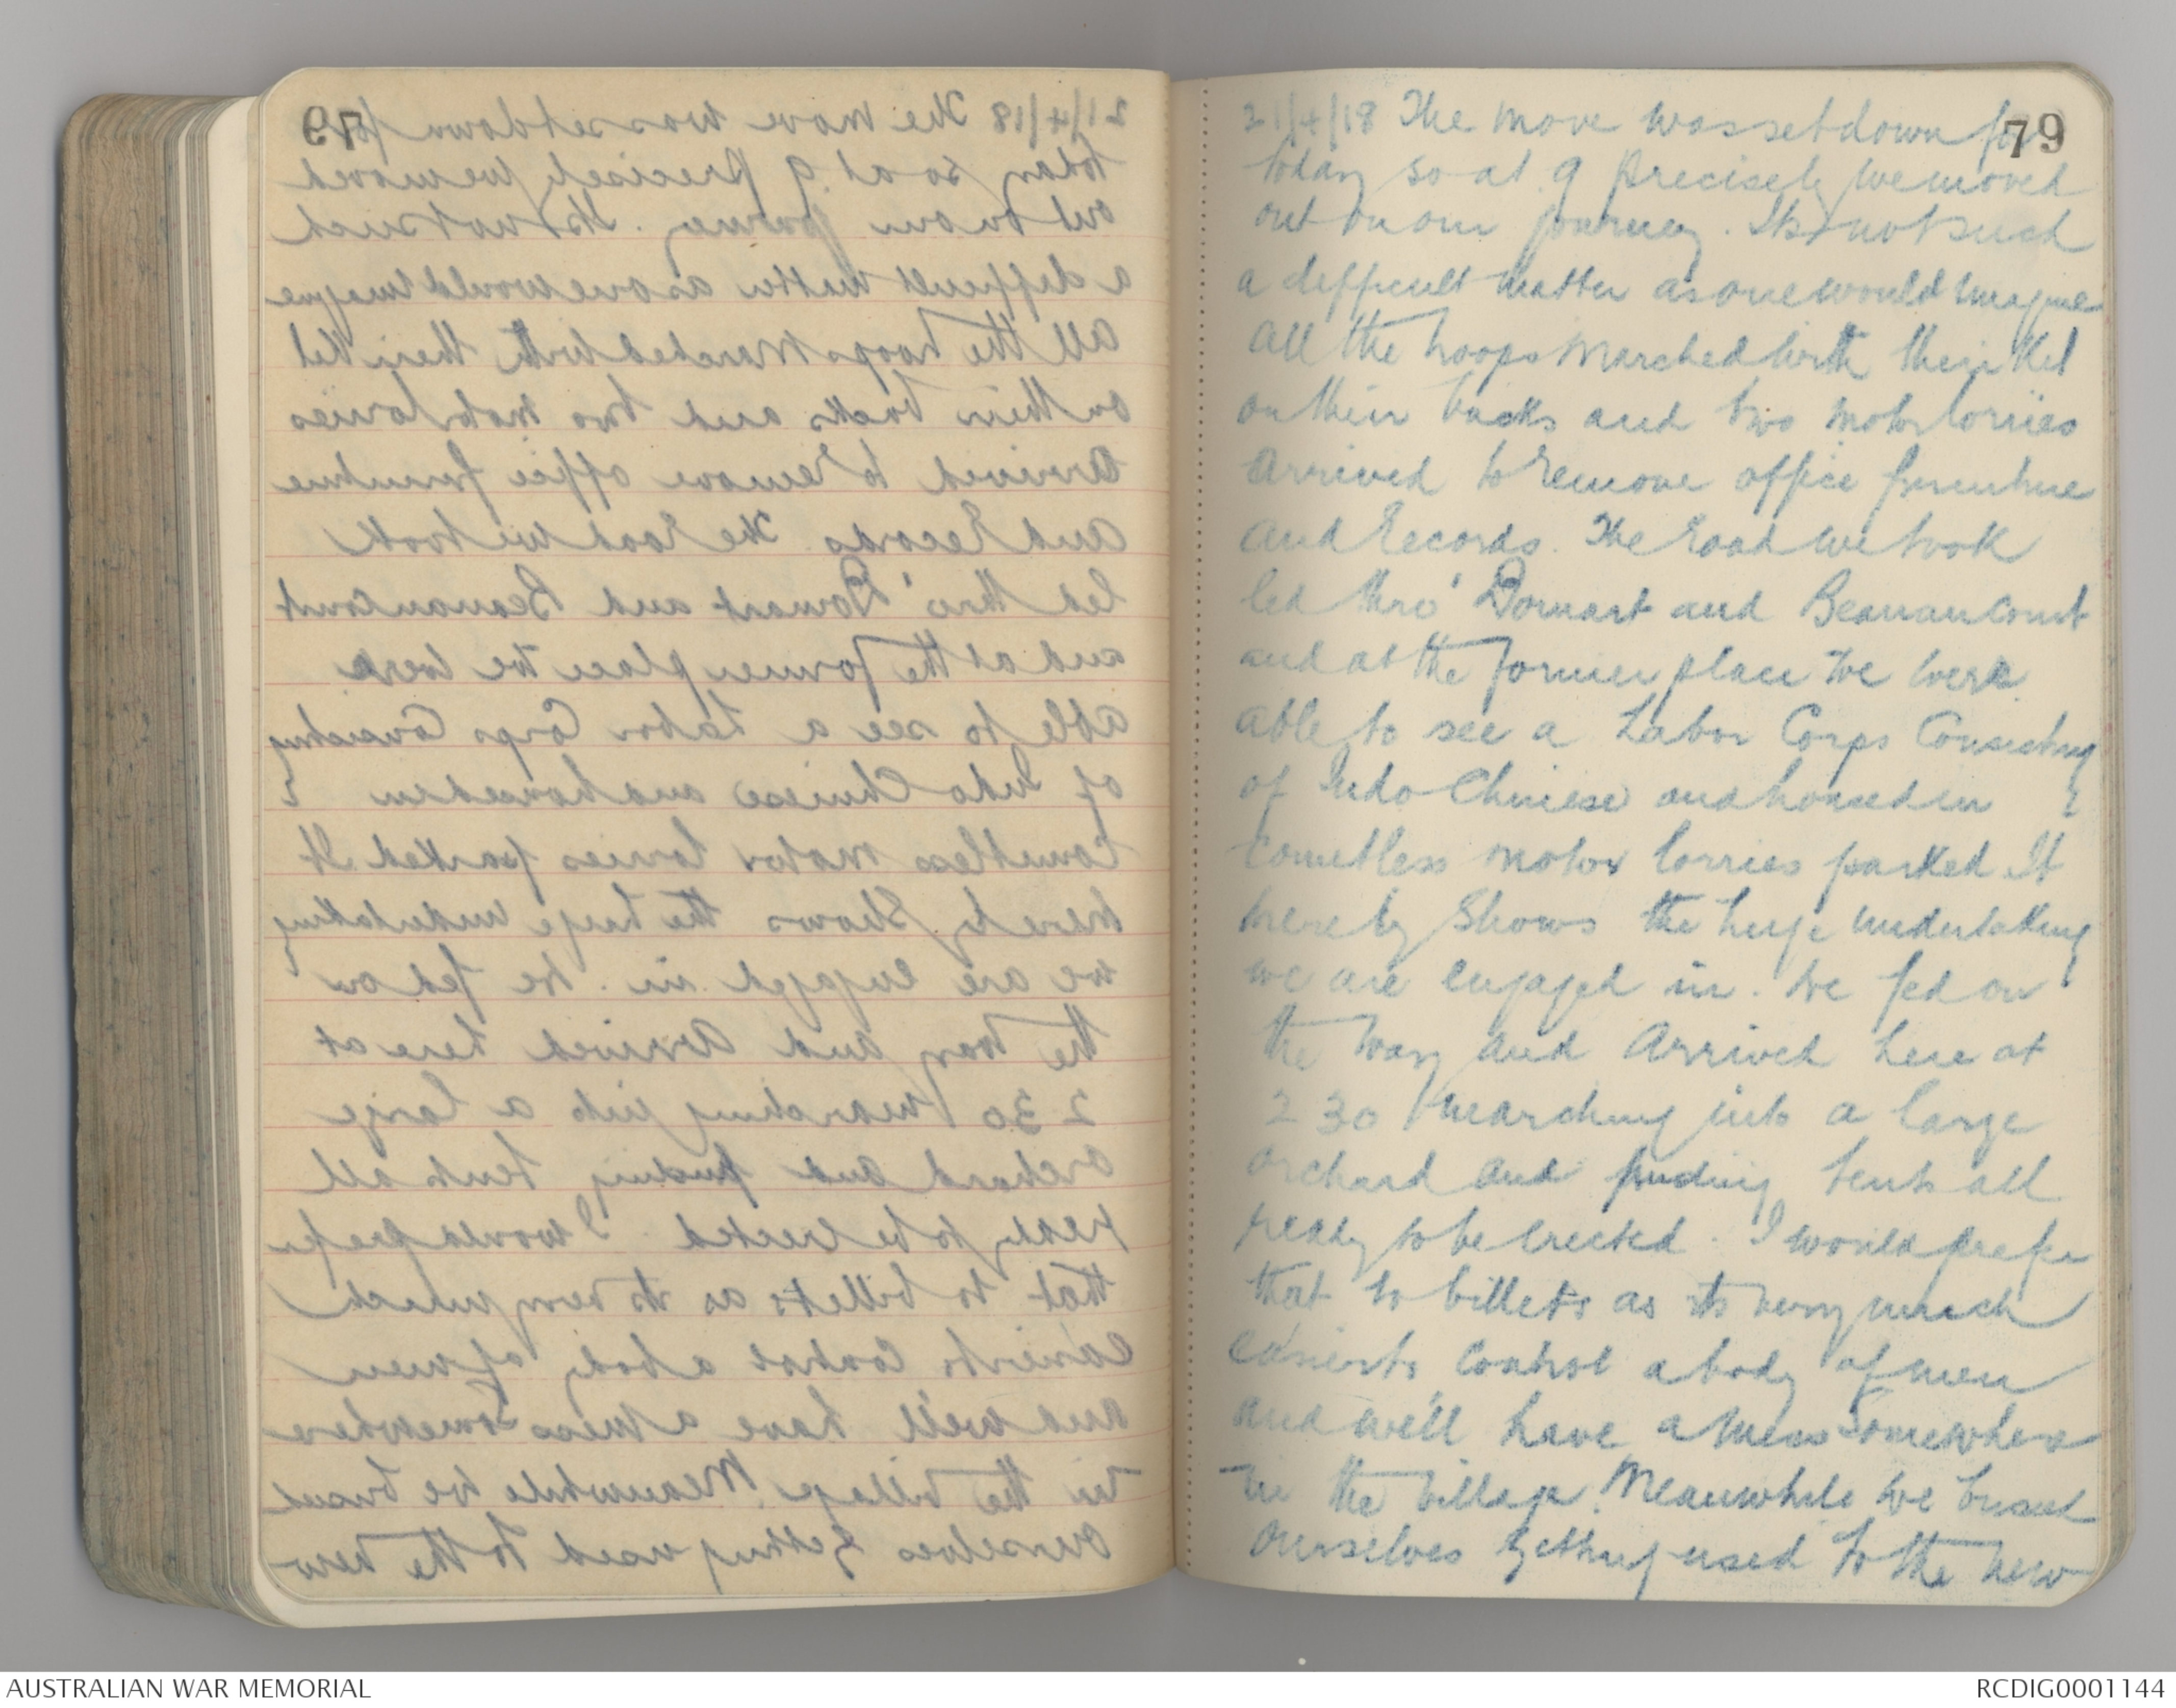 79
21/4/18 The move was set down for
today so at 9 precisely we moved
out on our journey. Its not such
a difficult matter as one would imagine
all the troops marched with their kit
on their backs and two motor lorries
arrived to remove office furniture
and records. The road we took
led thro' Domart and Beauvancourt
and at the former place we were
able to see a Labor Corps consisting
of Indo Chinese and housed in
countless motor lorries parked. It
merely shows the huge undertaking
we are engaged in. We fed on
the way and arrived here at
2 30 marching into a large
orchard and finding tents all
ready to be erected. I would prefer
that to billets as its very much
easier to control a body of men
and we'll have a mess somewhere
in the village. Meanwhile we busied
ourselves getting used to the new
AUSTRALIAN WAR MEMORIAL
RCDIG0001144